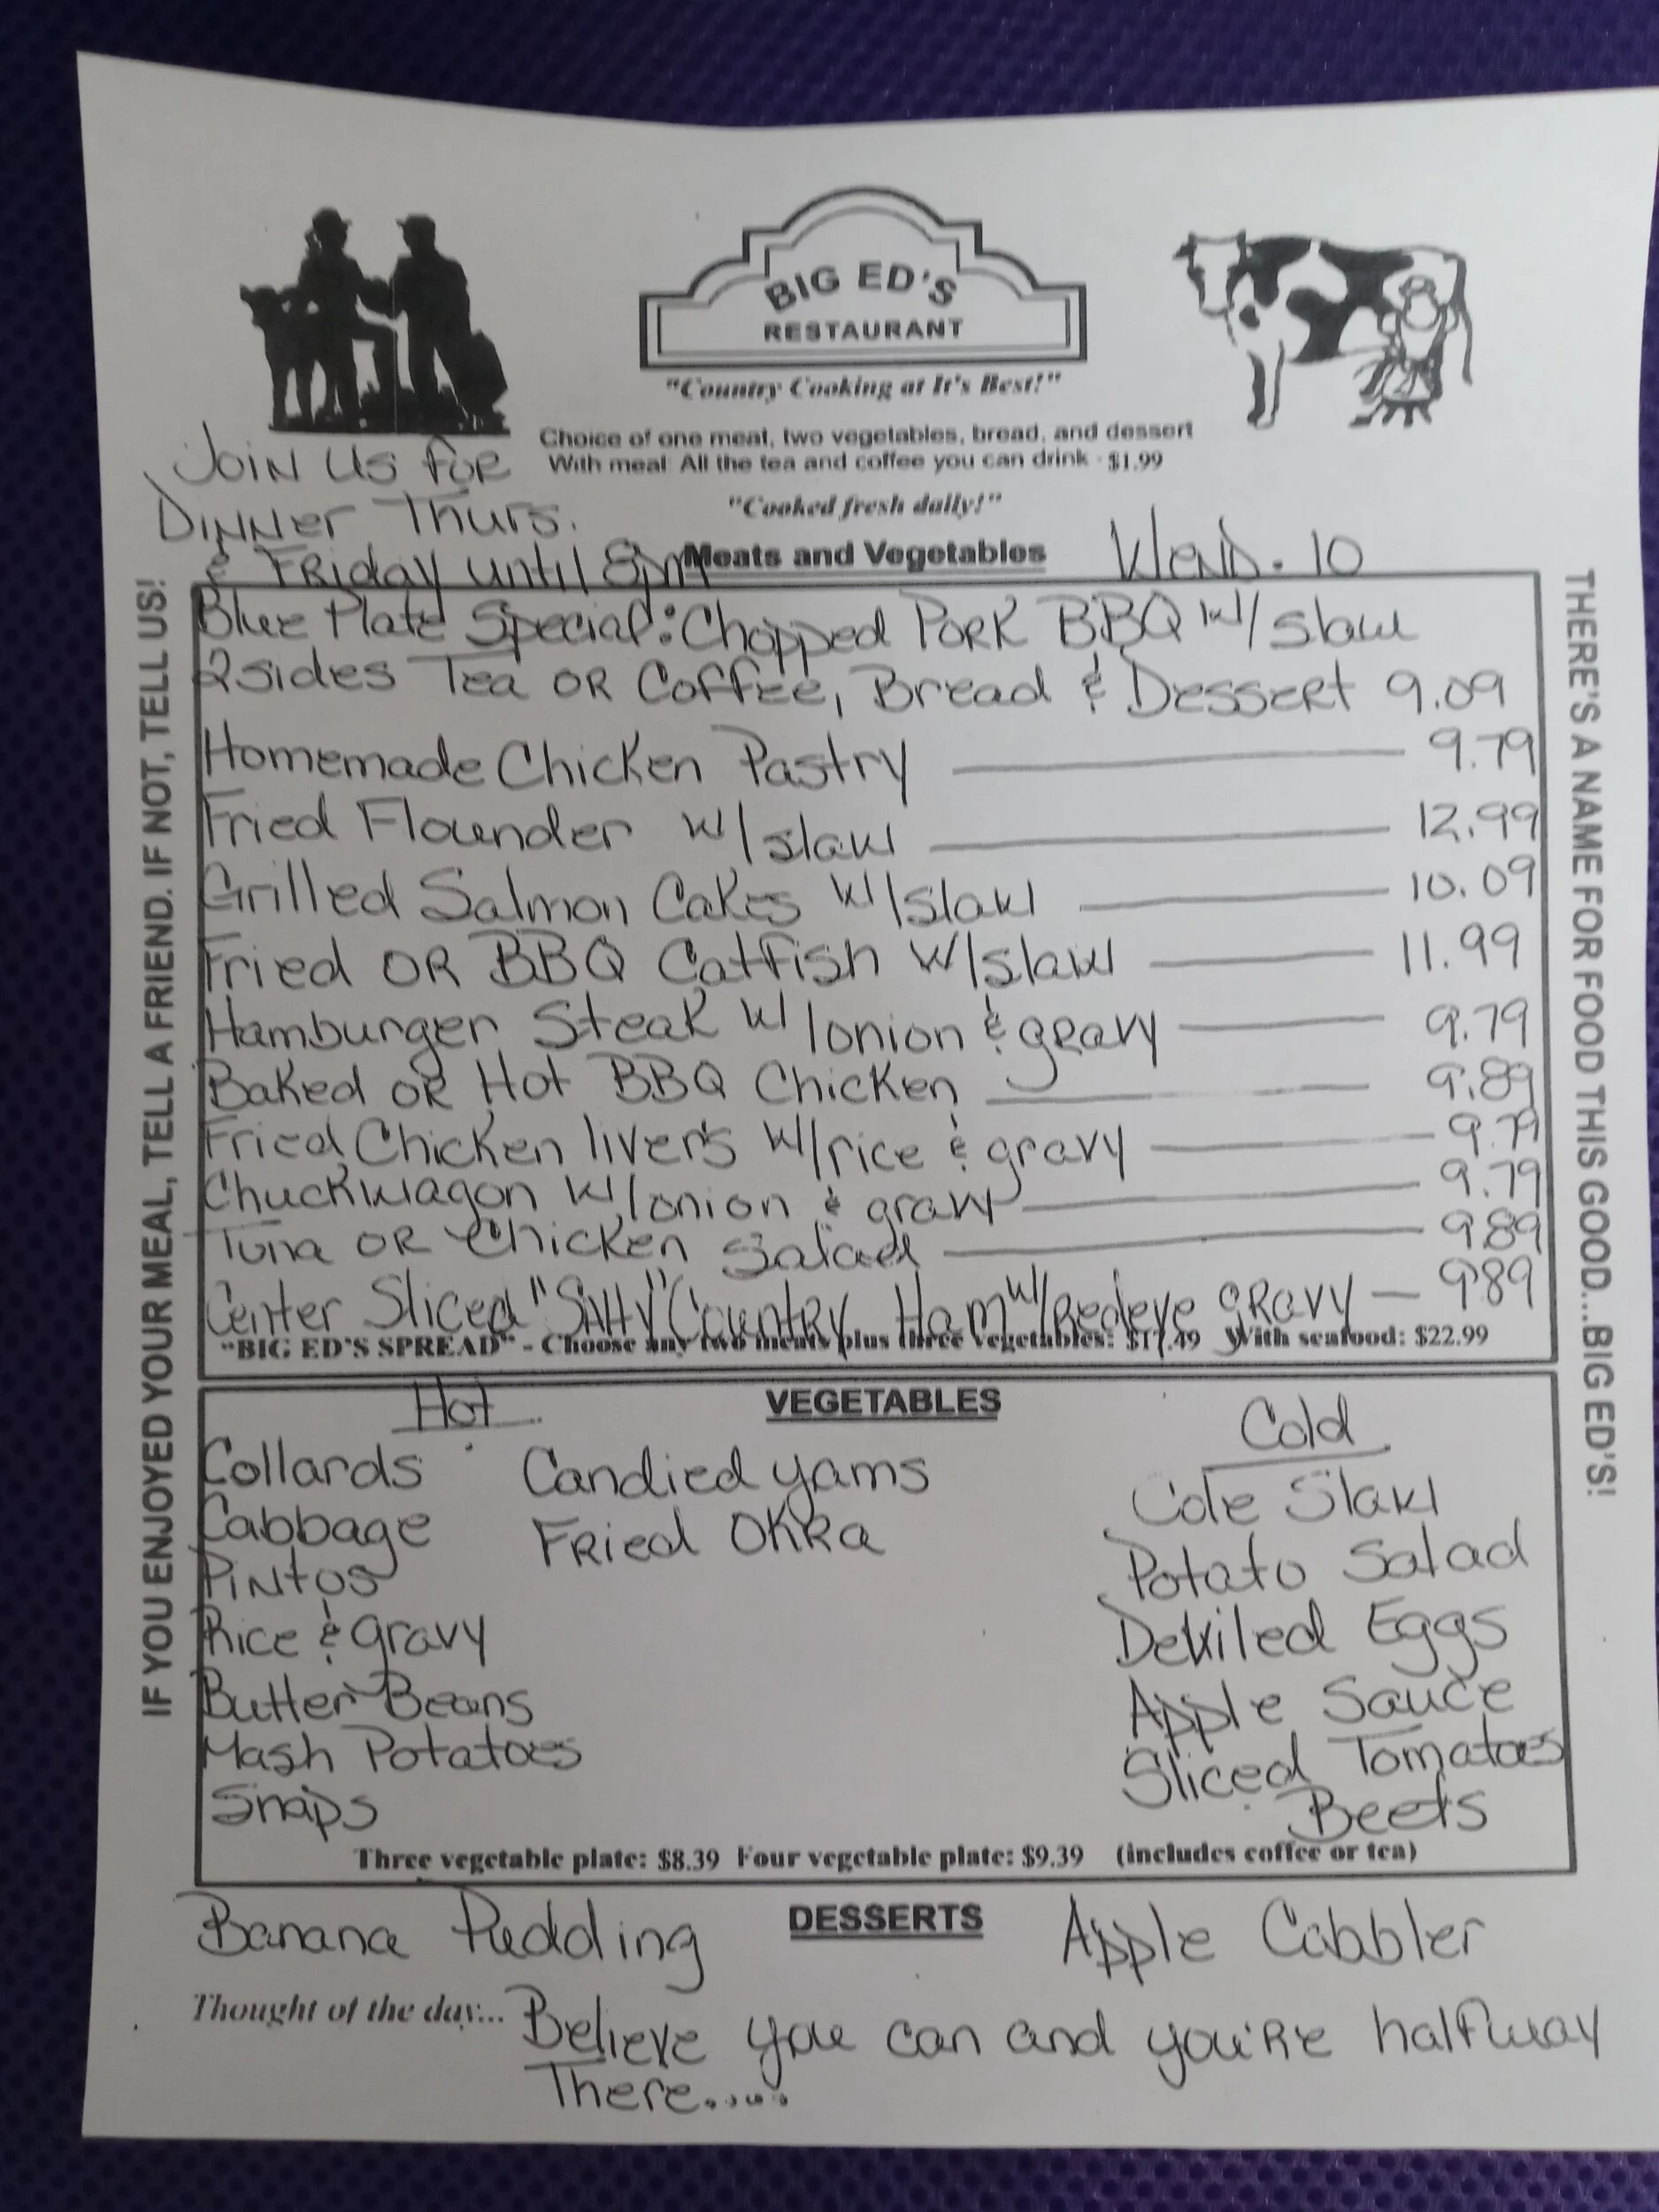 BIG ED'S
RESTAURANT
"Country Cooking at It's Best!"
Choice of one meat, two vegetables, bread, and dessert
With meal: All the tea and coffee you can drink - $1.99
"Cooked fresh daily!"
JOIN US FOR
DINNER THURS.
& FRIDAY UNTIL 8pm
Meats and Vegetables
Wend. 10
Blue Plate Special: Chopped PORK BBQ W/ slaw
2 sides Tea OR Coffee, Bread & Dessert 9.09
Homemade Chicken Pastry 9.79
Fried Flounder W/slaw 12.99
Grilled Salmon Cakes W/slaw 10.09
Fried OR BBQ Catfish W/slaw 11.99
Hamburger Steak W/onion & gravy 9.79
Baked OR Hot BBQ Chicken 9.89
Fried Chicken livers W/rice & gravy 9.79
Chuckwagon W/onion & gravy 9.79
Tuna OR Chicken Salad 9.89
Center Sliced "Salty" Country Ham W/Redeye gravy — 9.89
"BIG ED'S SPREAD" - Choose any two meats plus three vegetables: $17.49 With seafood: $22.99
VEGETABLES
Hot
Collards
Cabbage
Pintos
Rice & gravy
Butter Beans
Mash Potatoes
Snaps
Candied yams
Fried Okra
Cold
Cole Slaw
Potato Salad
Deviled Eggs
Apple Sauce
Sliced Tomatoes
Beets
Three vegetable plate: $8.39 Four vegetable plate: $9.39 (includes coffee or tea)
DESSERTS
Banana Pudding
Apple Cobbler
Thought of the day... Believe you can and you're halfway
There.....
IF YOU ENJOYED YOUR MEAL, TELL A FRIEND. IF NOT, TELL US!
THERE'S A NAME FOR FOOD THIS GOOD...BIG ED'S!